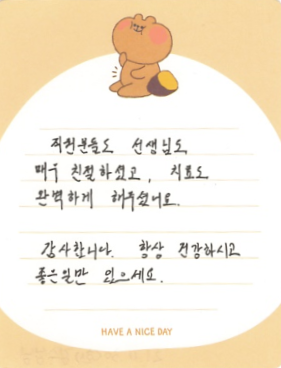 직원분들도 선생님도
매우 친절하셨고, 치료도
완벽하게 해주셨어요.
감사합니다. 항상 건강하시고
좋은일만 있으세요.
HAVE A NICE DAY